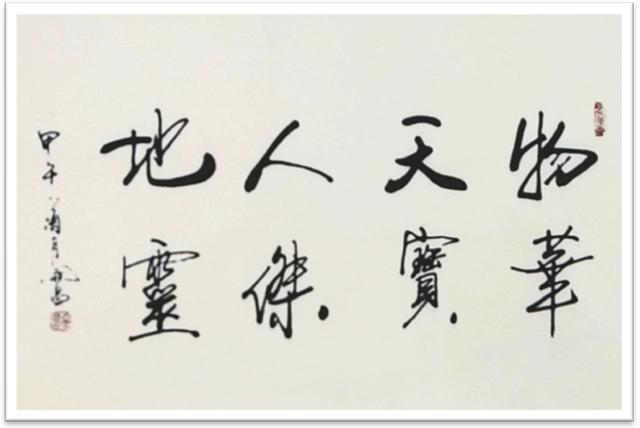 物華
天寶
人傑
地靈
甲午